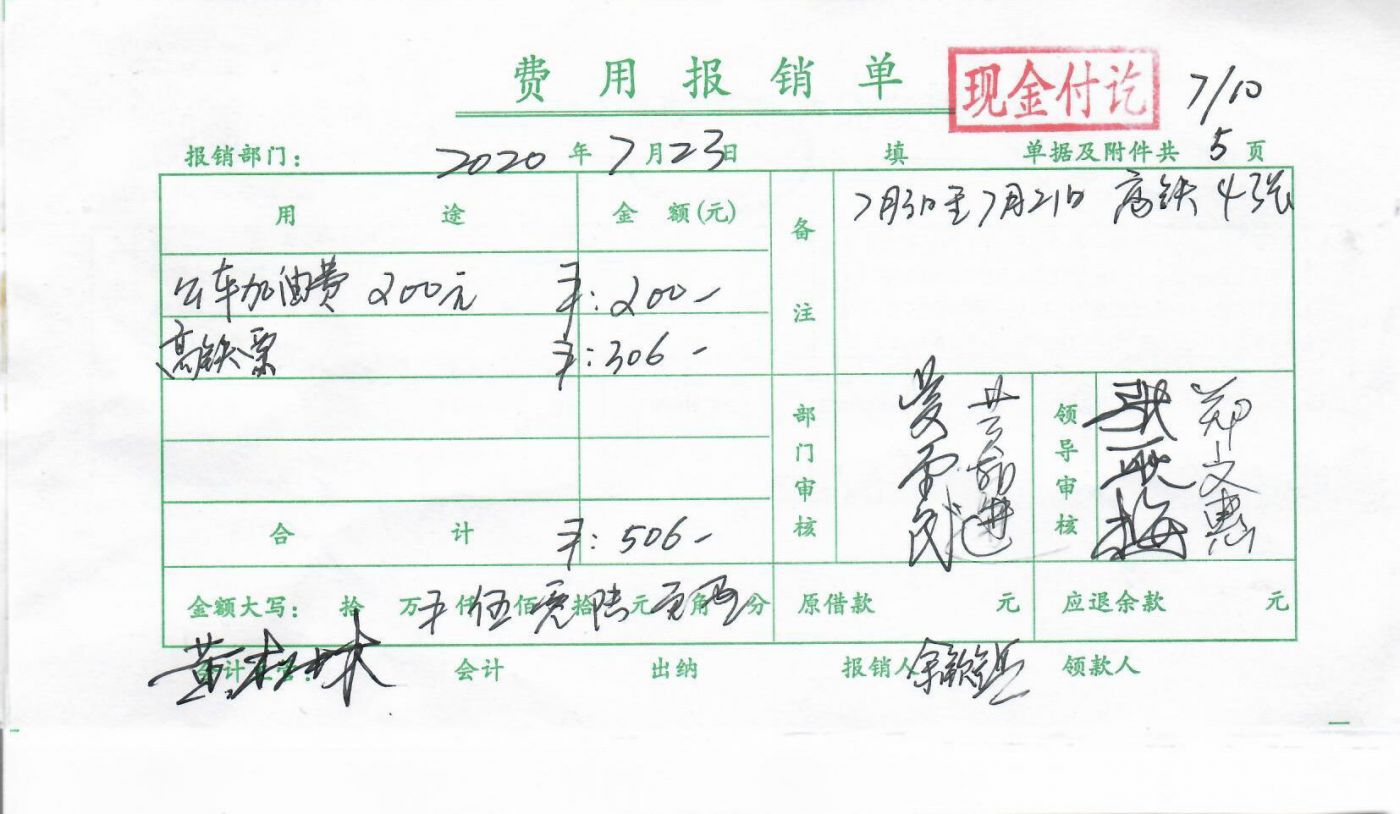 费用报销单 现金付讫 7/10
报销部门: 2020年7月23日 填 单据及附件共5页
用途 金额(元) 备注 7月3日至7月21日 高铁4张
公车加油费 200元 ¥:200-
高铁票 ¥:306-
部门审核 领导审核 郑文惠
合计 ¥:506-
金额大写: 拾万¥仟伍佰零拾陆元零角零分 原借款 元 应退余款 元
会计 出纳 报销人 领款人